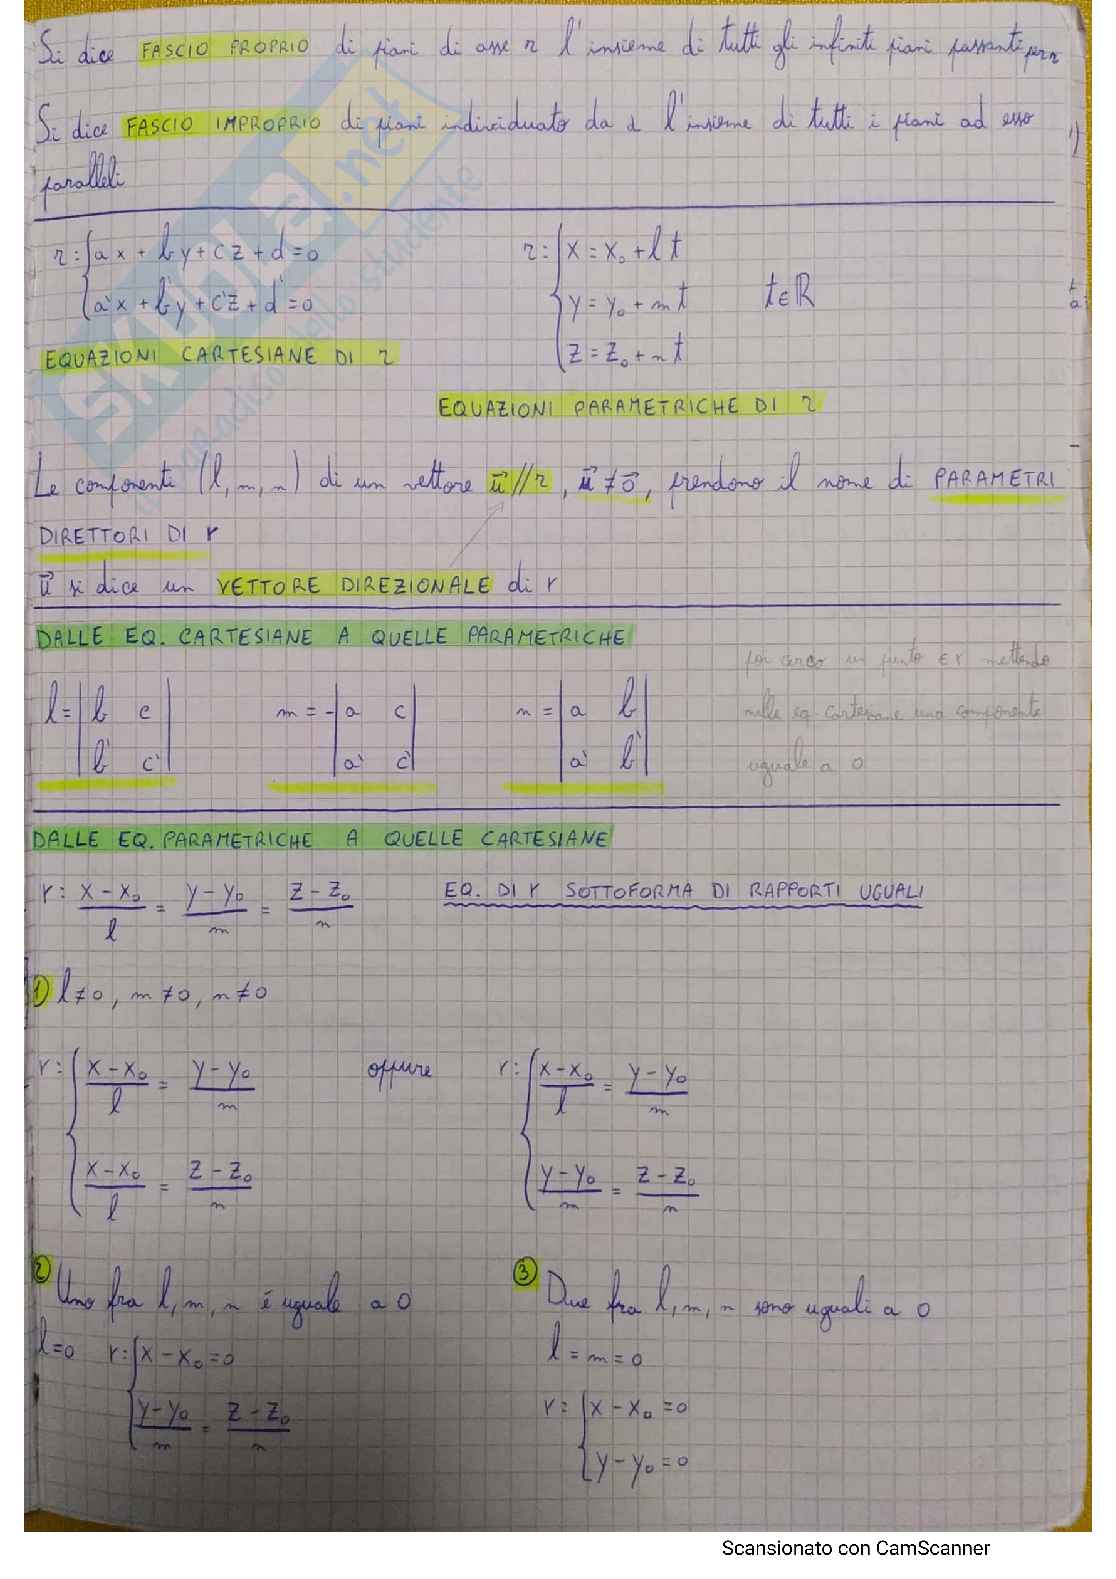 Si dice FASCIO PROPRIO di piani di asse r l'insieme di tutti gli infiniti piani passanti per r
Si dice FASCIO IMPROPRIO di piani individuato da α l'insieme di tutti i piani ad esso
paralleli
r: { ax + by + cz + d = 0
a'x + b'y + c'z + d' = 0
EQUAZIONI CARTESIANE DI r
r: { x = x₀ + lt
y = y₀ + mt
z = z₀ + nt
t ∈ ℝ
EQUAZIONI PARAMETRICHE DI r
Le componenti (l, m, n) di un vettore u⃗ // r, u⃗ ≠ o⃗, prendono il nome di PARAMETRI
DIRETTORI DI r
u⃗ si dice un VETTORE DIREZIONALE di r
DALLE EQ. CARTESIANE A QUELLE PARAMETRICHE
l = | b c |
| b' c' |
m = - | a c |
| a' c' |
n = | a b |
| a' b' |
poi cerco un punto ∈ r mettendo
nelle eq. cartesiane una componente
uguale a 0
DALLE EQ. PARAMETRICHE A QUELLE CARTESIANE
r: (x - x₀)/l = (y - y₀)/m = (z - z₀)/n
EQ. DI r SOTTOFORMA DI RAPPORTI UGUALI
1) l ≠ 0, m ≠ 0, n ≠ 0
r: { (x - x₀)/l = (y - y₀)/m
(x - x₀)/l = (z - z₀)/n
oppure
r: { (x - x₀)/l = (y - y₀)/m
(y - y₀)/m = (z - z₀)/n
2 Uno fra l, m, n è uguale a 0
l = 0 r: { x - x₀ = 0
(y - y₀)/m = (z - z₀)/n
3 Due fra l, m, n sono uguali a 0
l = m = 0
r: { x - x₀ = 0
y - y₀ = 0
SKUOLA.net
Scansionato con CamScanner